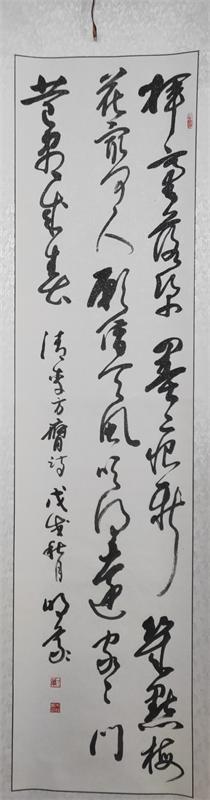 揮毫落紙墨痕新幾點梅
花最可人願借天風吹得遠家々門
巷盡成春 清李方膺詩 戊戌秋月 明